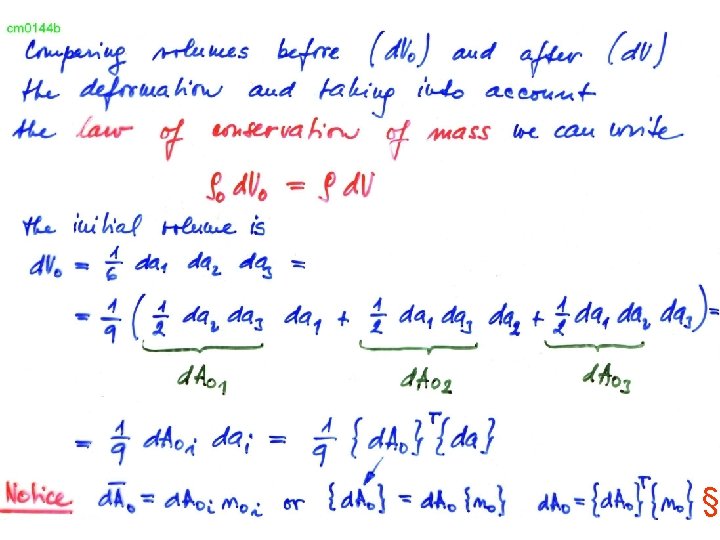 cm0144b
Comparing volumes before (dV₀) and after (dV)
the deformation and taking into account
the law of conservation of mass we can write
ρ₀ dV₀ = ρ dV
the initial volume is
dV₀ = 1/6 da₁ da₂ da₃ =
= 1/9 ( 1/2 da₂ da₃ da₁ + 1/2 da₁ da₃ da₂ + 1/2 da₁ da₂ da₃ ) =
dA₀₁ dA₀₂ dA₀₃
= 1/9 dA₀ᵢ daᵢ = 1/9 {dA₀}ᵀ{da}
Notice d̅A̅₀ = dA₀ᵢ n₀ᵢ or {dA₀} = dA₀ {n₀} dA₀ = {dA₀}ᵀ{n₀} §